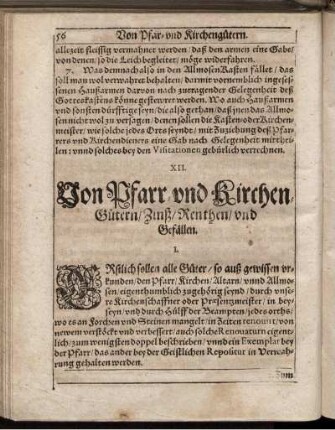 56 Von Pfar- vnd Kirchengütern.
allezeit fleissig vermahnet werden / daß den armen eine Gabe /
von denen / so die Leich begleitet / möge widerfahren.
7. Was demnach also in den Allmosen Kasten fället / das
soll man wol verwahret behalten / darmit vornemblich ingesessenen
Hausarmen darvon nach zutragender Gelegenheit deß
Gotteskastens könne gestewret werden. Wo auch Hausarmen
vnd sonsten dürfftige seyn / die also gethan / daß jnen das Allmosen
nicht wol zu versagen / denen sollen die Kasten- oder Kirchenmeister /
wie solche jedes Orts seyndt / mit Zuziehung deß Pfarrers
vnd Kirchendieners eine Gab nach Gelegenheit mittheilen /
vnnd solches bey den Visitationen gebürlich verrechnen.
XII.
Von Pfarr vnd Kirchen
Gütern / Zinß / Renthen / vnd
Gefällen.
I.
ERstlich sollen alle Güter / so auß gewissen vrkunden /
den Pfarr / Kirchen / Altarn / vnnd Allmosen /
eigenthumblich zugehörig seynd / durch vnsere
Kirchenschaffner oder Præsentzmeister / in beyseyn /
vnd durch Hülff der Beampten / jedes orths /
wo es an Forchen vnd Steinen mangelt / in Zeiten renovirt / von
newem verstöckt vnd verbessert / auch solche Renovaturn eigentlich /
zum wenigsten doppel beschrieben / vnnd ein Exemplar bey
der Pfarr / das ander bey der Geistlichen Repositur in Verwahrung
gehalten werden.